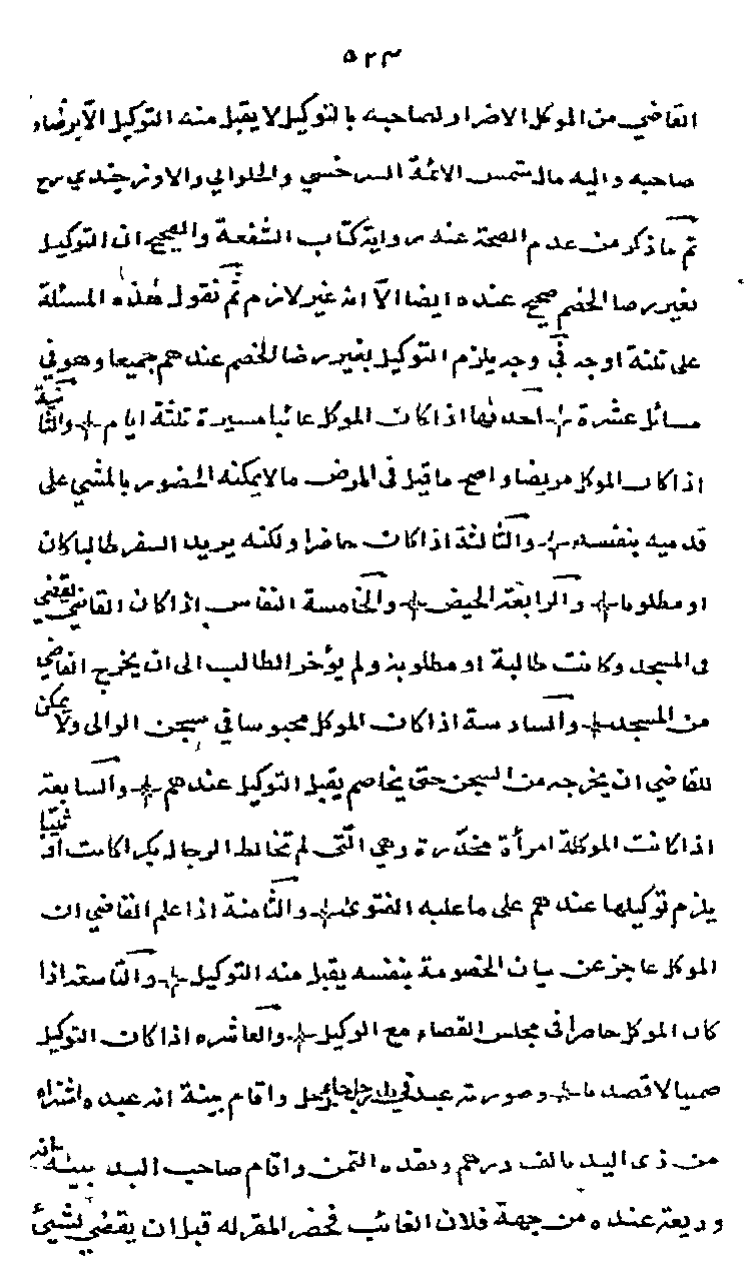 ٥٢٣
القاضي من الموكل الاضرار لصاحبه بالتوكيل لا يقبل منه التوكيل الا برضاء
صاحبه واليه مال شمس الائمة السرخسي والحلواني والاوزجندي رح
ثم ما ذكر من عدم الصحة عنده رواية كتاب الشفعة والصحيح ان التوكيل
بغير رضا الخصم صحيح عنده ايضا الا انه غير لازم ثم نقول هذه المسئلة
على ثلثة اوجه في وجه يلزم التوكيل بغير رضا الخصم عندهم جميعا وهو في
مسائل عشرة احديها اذا كان الموكل غائبا مسيرة ثلثة ايام والثانية
اذا كان الموكل مريضا واصح ما قيل في المرض ما لا يمكنه الحضور بالمشي على
قدميه بنفسه والثالثة اذا كان حاضرا ولكنه يريد السفر طالبا كان
او مطلوبا والرابعة الحيض والخامسة النفاس اذا كان القاضي يقضي
في المسجد وكانت طالبة او مطلوبة ولم يؤخر الطالب الى ان يخرج القاضي
من المسجد والسادسة اذا كان الموكل محبوسا في سجن الوالى ولا يمكن
للقاضي ان يخرجه من السجن حتى يخاصم يقبل التوكيل عندهم والسابعة
اذا كانت الموكلة امرأة مخدرة وهي التى لم تخالط الرجال بكرا كانت او ثيبا
يلزم توكيلها عندهم على ما عليه الفتوى والثامنة اذا علم القاضي ان
الموكل عاجز عن بيان الخصومة بنفسه يقبل منه التوكيل والتاسعة اذا
كان الموكل حاضرا في مجلس القضاء مع الوكيل والعاشره اذا كان التوكيل
ضمنيا لا قصديا وصورته عبد في يد رجل جاء رجل واقام بينة انه عبده اشتراه
من ذى اليد بالف درهم ونقده الثمن واقام صاحب اليد بينة انه
وديعة عنده من جهة فلان الغائب فحضر المقر له قبل ان يقضي بشيئ